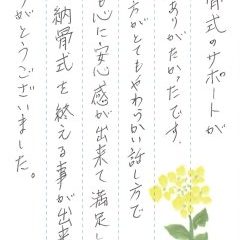 骨式のサポートが
ありがたかったです。
方がとてもやわらかい話し方で
も心に安心感が出来て満足し
納骨式を終える事が出来
がとうございました。